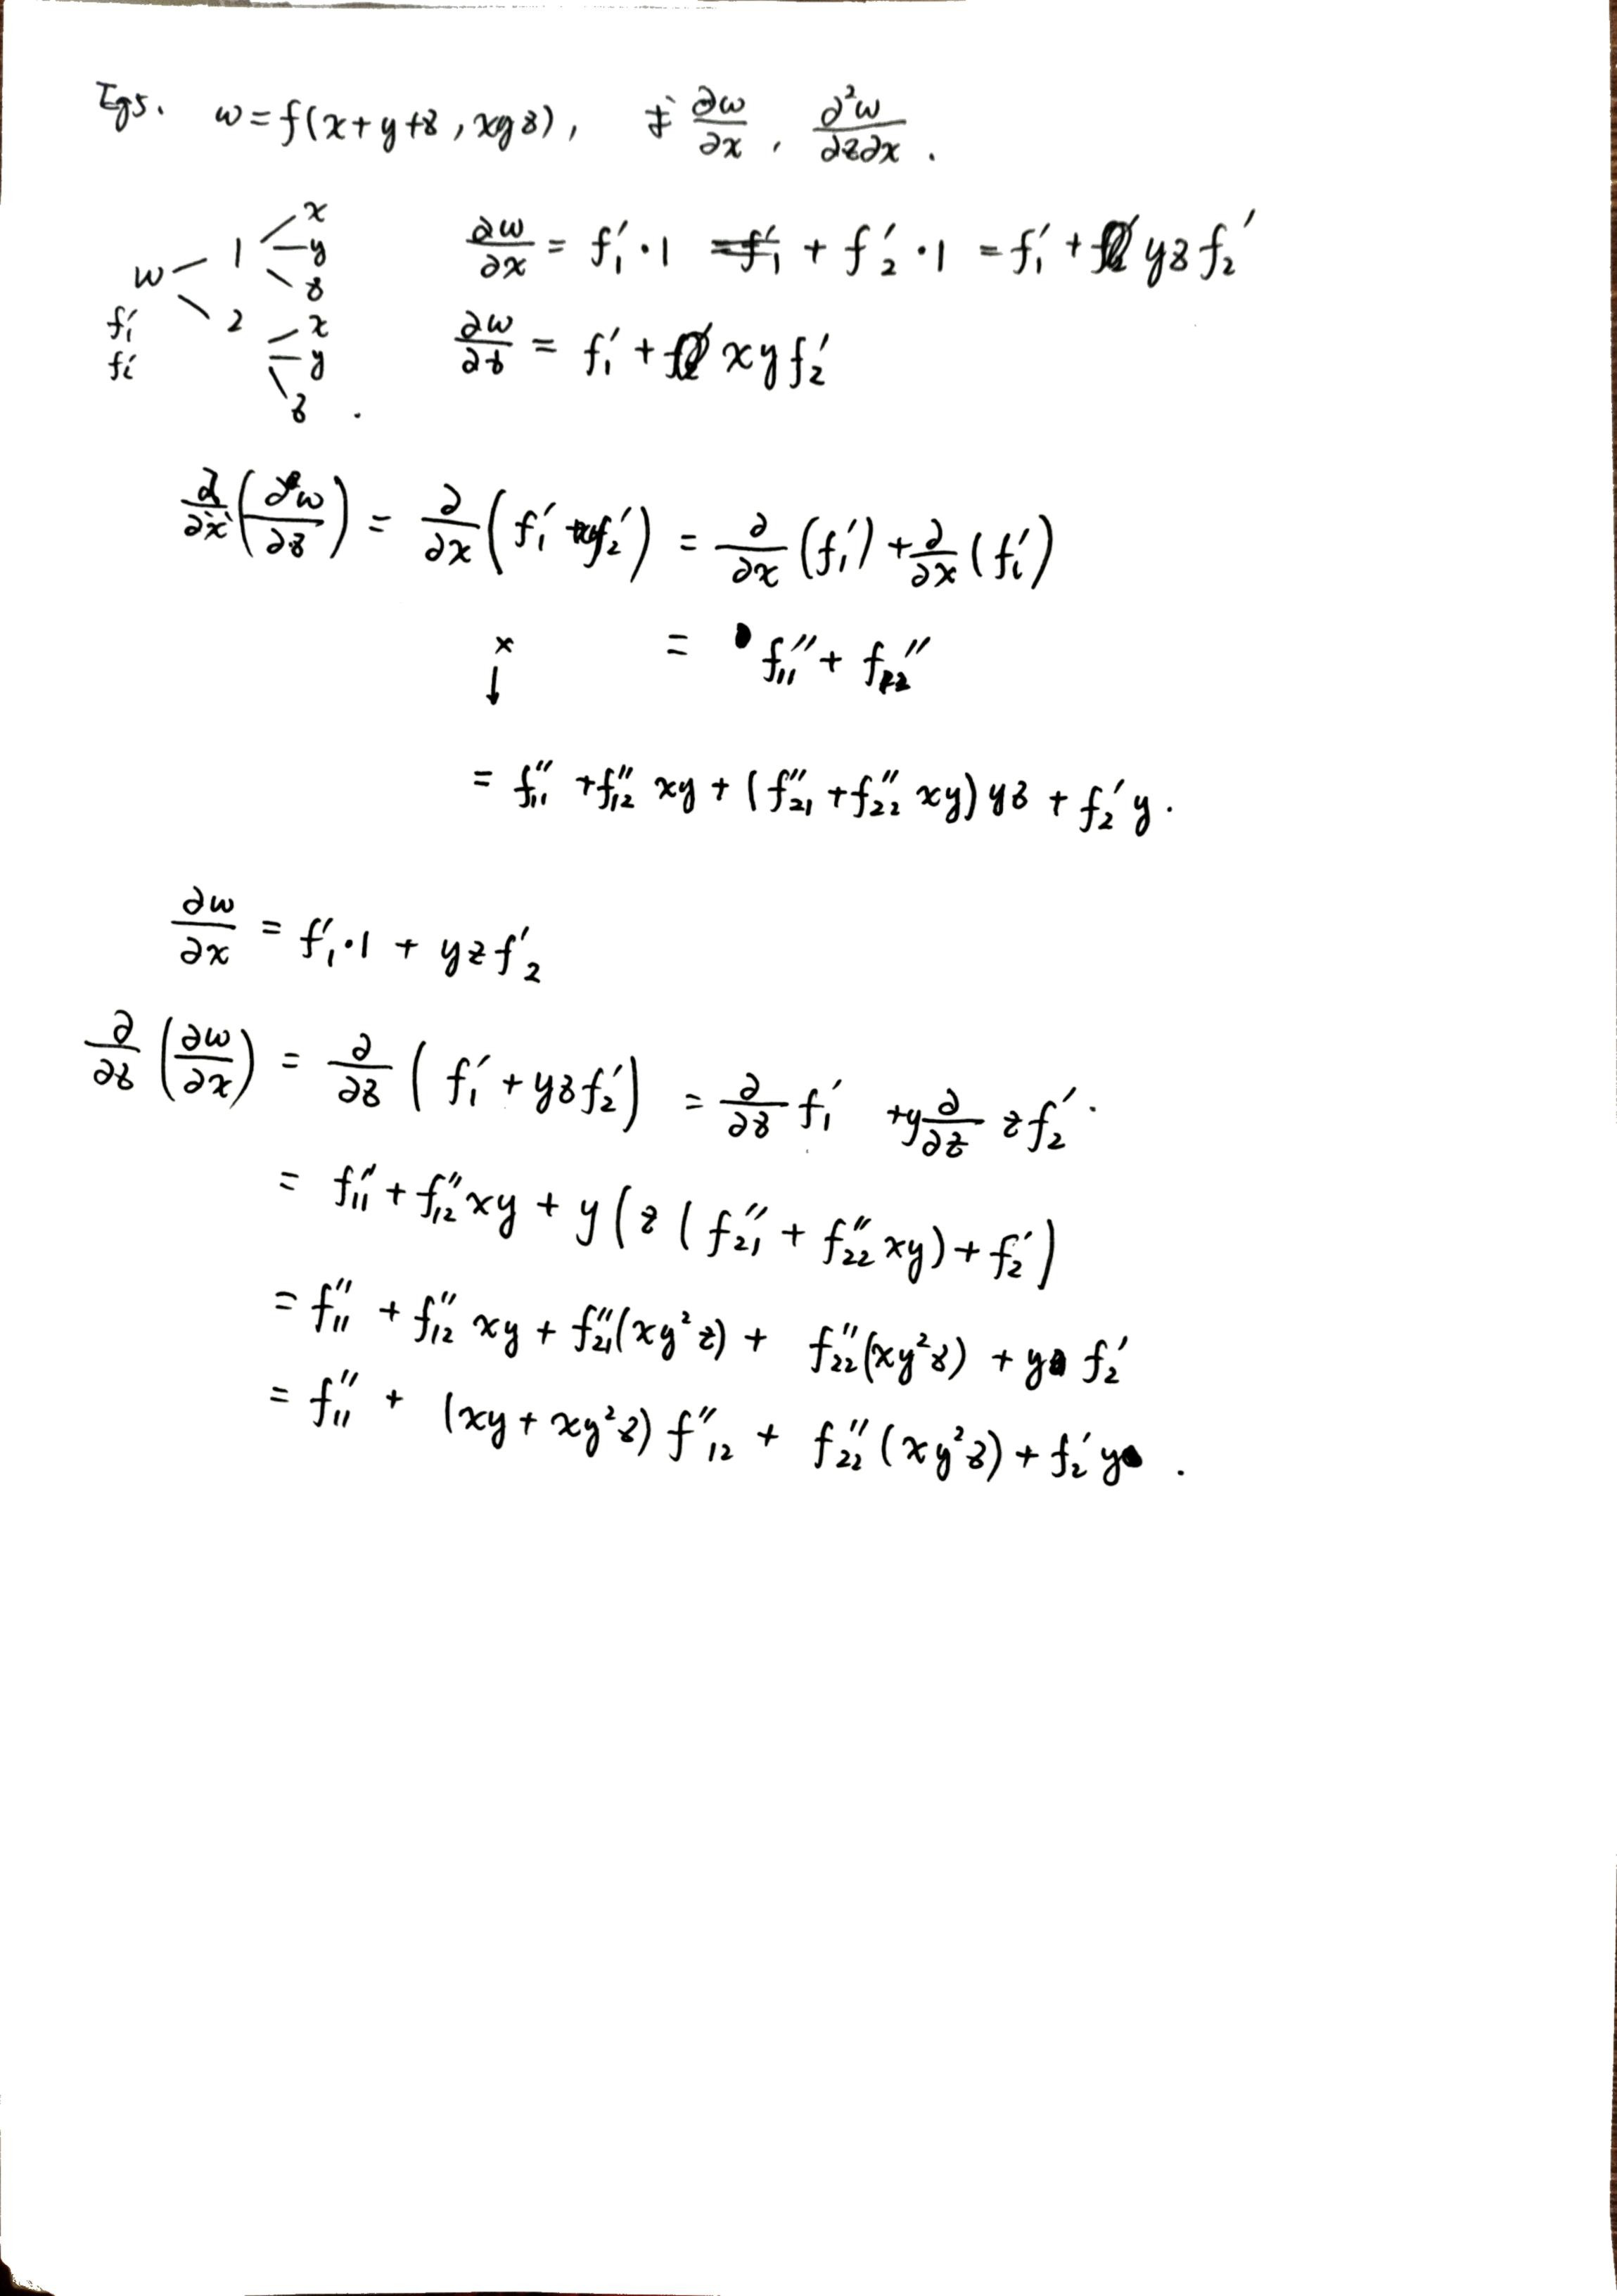 Eg5. w=f(x+y+z, xyz), 求 ∂w/∂x, ∂²w/∂z∂x.
w 1 x y z
2 x y z.
f₁′
f₂′
∂w/∂x = f₁′·1 + f₂′·1 = f₁′ + yz f₂′
∂w/∂z = f₁′ + xy f₂′
∂/∂x (∂w/∂z) = ∂/∂x (f₁′ + xy f₂′) = ∂/∂x (f₁′) + ∂/∂x (f₂′)
× ↓ = f₁₁″ + f₂₂″
= f₁₁″ + f₁₂″ xy + (f₂₁″ + f₂₂″ xy) yz + f₂′ y.
∂w/∂x = f₁′·1 + yz f₂′
∂/∂z (∂w/∂x) = ∂/∂z (f₁′ + yz f₂′) = ∂/∂z f₁′ + y ∂/∂z z f₂′.
= f₁₁″ + f₁₂″ xy + y (z (f₂₁″ + f₂₂″ xy) + f₂′)
= f₁₁″ + f₁₂″ xy + f₂₁″(xy²z) + f₂₂″(xy²z) + y f₂′
= f₁₁″ + (xy + xy²z) f″₁₂ + f₂₂″ (xy²z) + f₂′ y.